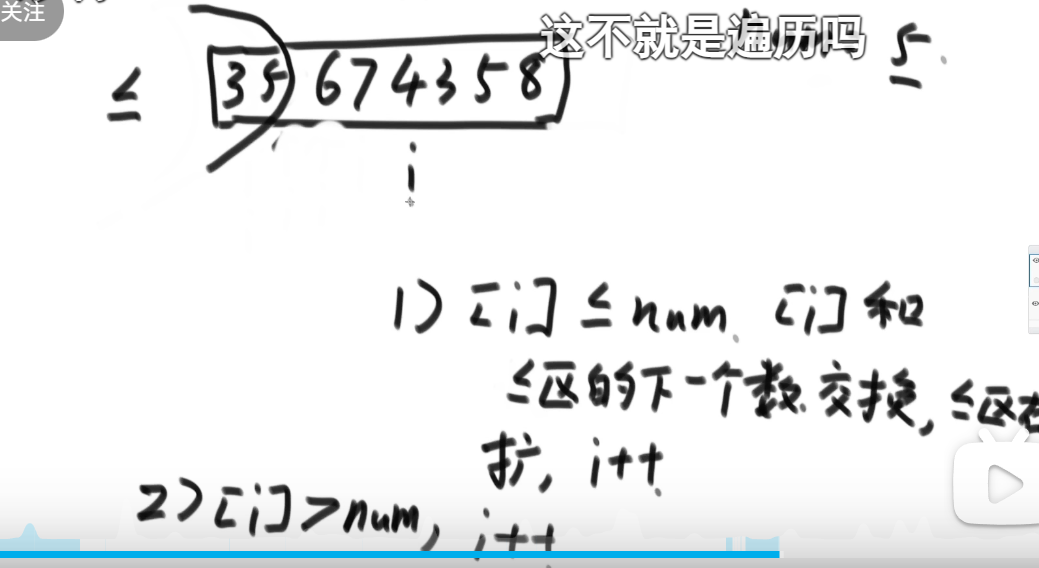 关注
这不就是遍历吗
5
≤ 35 674358
i
1) [i] ≤ num. [i] 和
≤区的下一个数交换, ≤区右
扩, i++.
2) [i] > num, i++